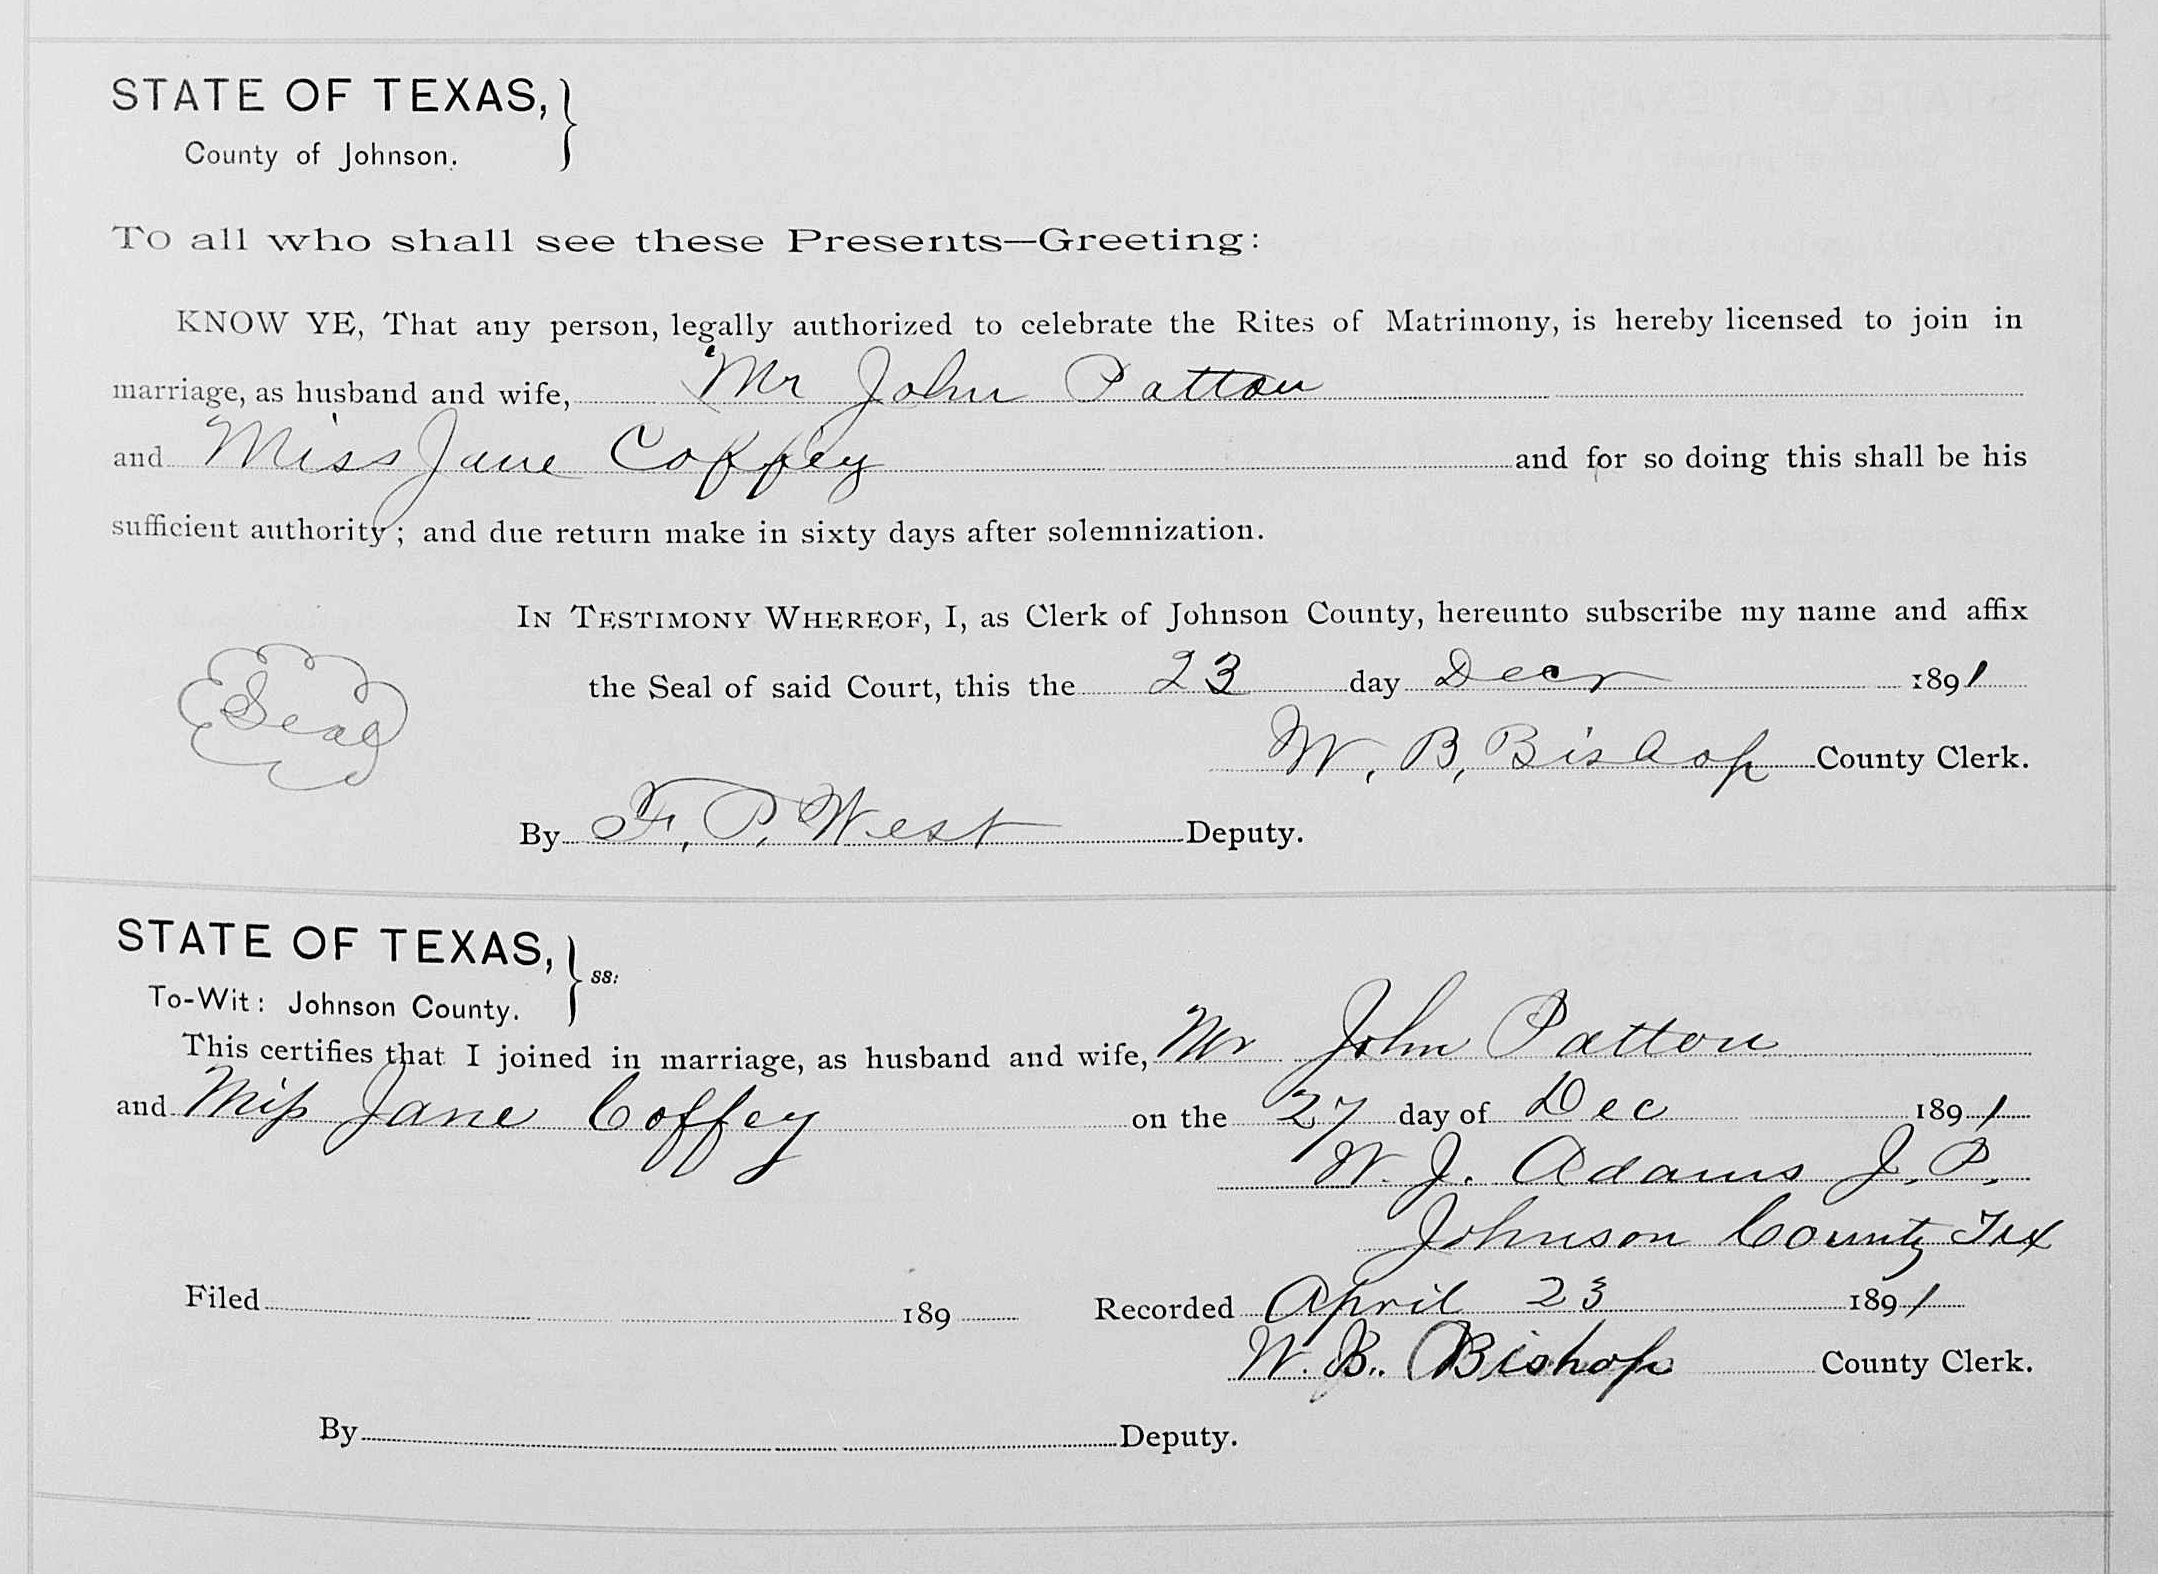 STATE OF TEXAS, }
County of Johnson.
To all who shall see these Presents—Greeting:
KNOW YE, That any person, legally authorized to celebrate the Rites of Matrimony, is hereby licensed to join in
marriage, as husband and wife, Mr John Patton
and Miss Jane Coffey and for so doing this shall be his
sufficient authority; and due return make in sixty days after solemnization.
IN TESTIMONY WHEREOF, I, as Clerk of Johnson County, hereunto subscribe my name and affix
Seal
the Seal of said Court, this the 23 day Decr 1891
W. B. Bishop County Clerk.
By F. P. West Deputy.
STATE OF TEXAS, } ss:
To-Wit: Johnson County.
This certifies that I joined in marriage, as husband and wife, Mr John Patton
and Miss Jane Coffey on the 27 day of Dec 1891
W. J. Adams J. P.
Johnson County Tex
Filed 189 Recorded April 23 1891
W. B. Bishop County Clerk.
By Deputy.